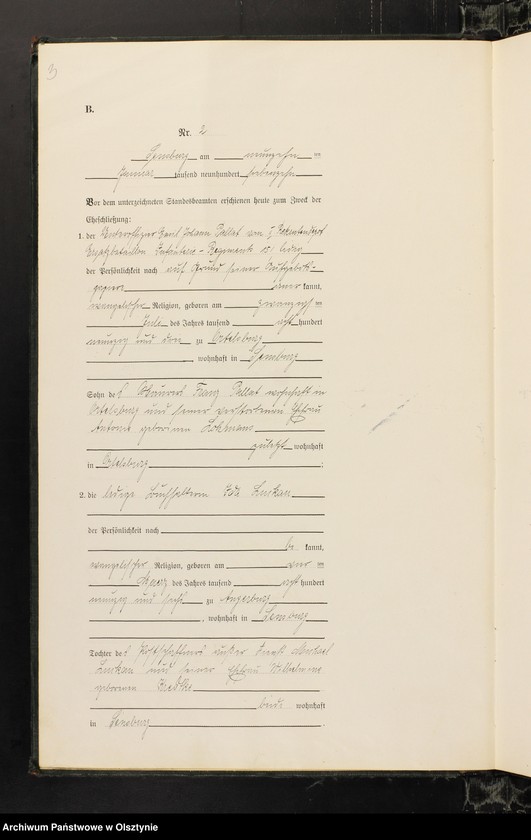 B.
Nr. 2
am neunzehn ten
Januar tausend neunhundert siebenzehn
Vor dem unterzeichneten Standesbeamten erschienen heute zum Zweck der
Eheschließung:
1. der Unteroffizier Johann Pellat von
Ersatzbataillon Infanterie-Regiment
der Persönlichkeit nach auf Grund seiner Militär-
papiere kannt,
evangelischer Religion, geboren am zwanzigsten
Juli des Jahres tausend acht hundert
neunzig und drei zu Ortelsburg
, wohnhaft in Sensburg
Sohn des Maurers Franz Pellat wohnhaft in
Ortelsburg und seiner verstorbenen Ehefrau
geborenen
zuletzt wohnhaft
in Ortelsburg ;
2. die ledige Buchhalterin Ida
der Persönlichkeit nach
be kannt,
evangelischer Religion, geboren am ten
März des Jahres tausend acht hundert
neunzig und sechs zu Angerburg
, wohnhaft in Sensburg
Tochter des Postschaffners außer Michael
und seiner Ehefrau Wilhelmine
geborenen
beide wohnhaft
in Sensburg .
Archiwum Państwowe w Olsztynie